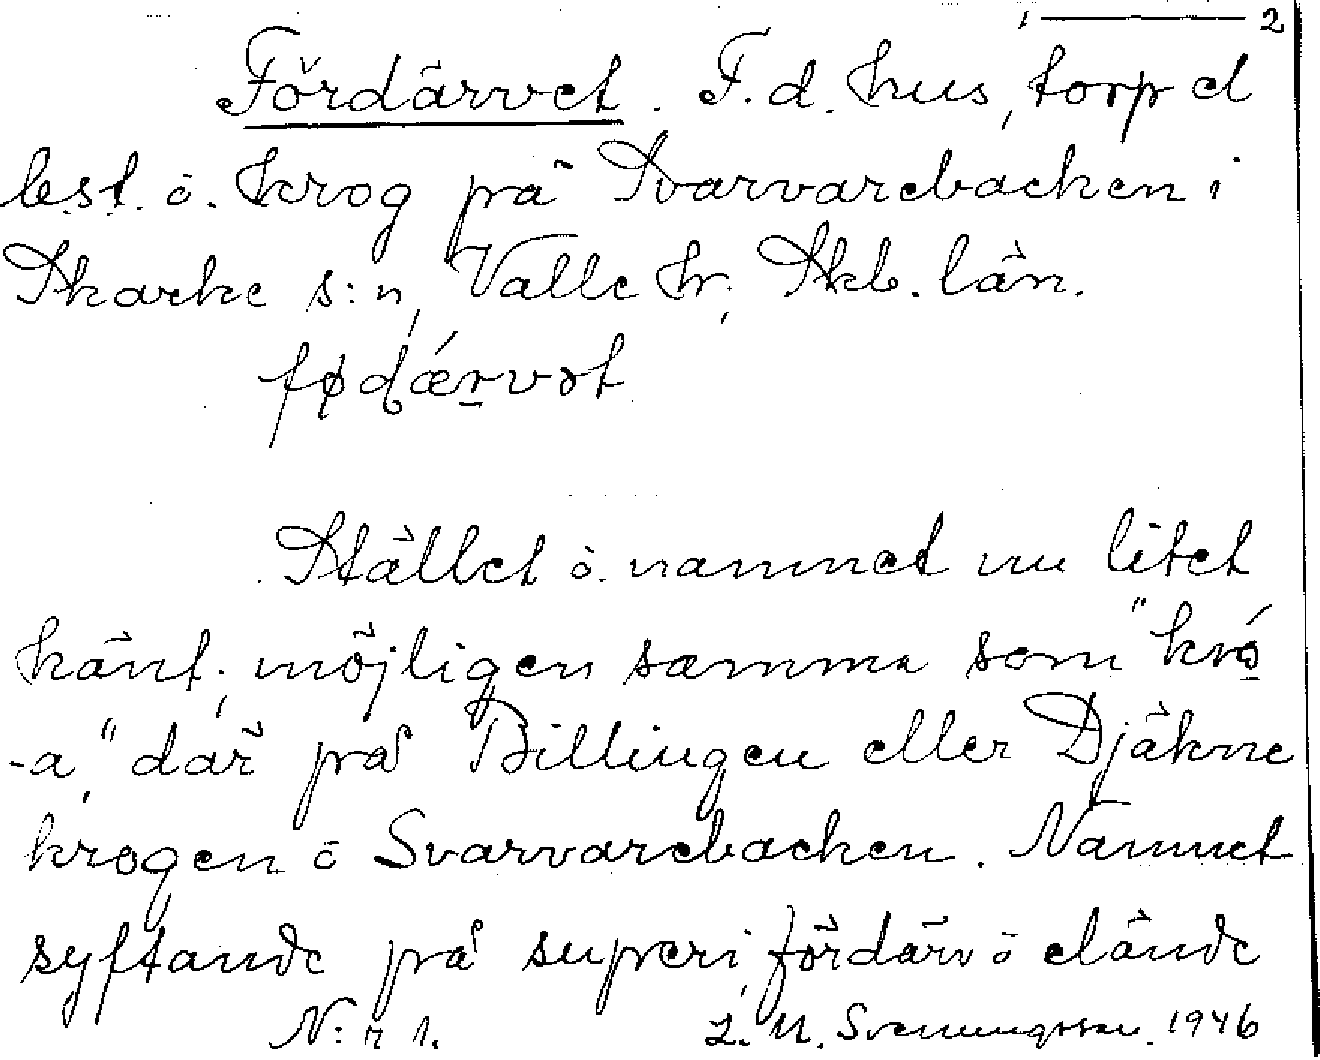 1 ——— 2
Fördärvet. F.d. hus, torp el
best. o. krog på Svarvarebacken i
Skarke s:n, Valle hr, Skb. län.
Stället o. namnet nu litet
känt; möjligen samma som "kró
-a," där på Billingen eller Djäkne
krogen o Svarvarebacken. Namnet
syftande på superi, fördärv o elände
N:r 1. L. M. Svenungsson. 1946